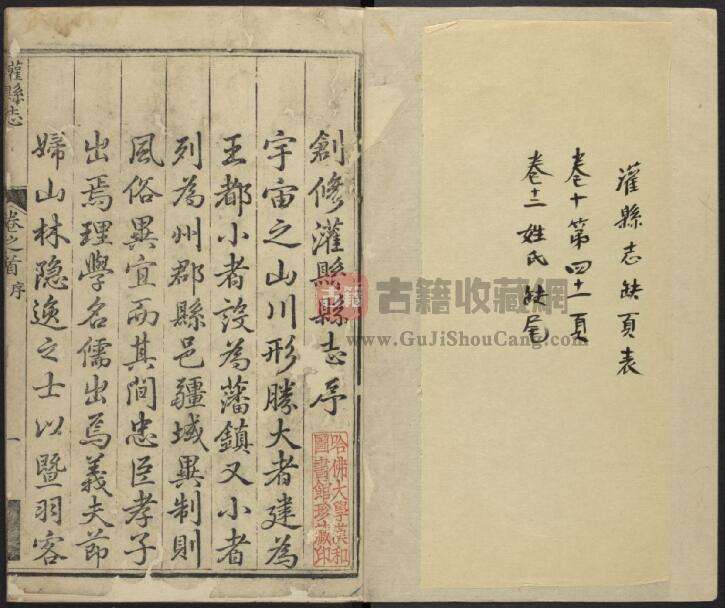 灌縣志缺頁表
卷十第四十一頁
卷十二姓氏缺尾
創修灌縣縣志序
宇宙之山川形勝大者建為
王都小者設為藩鎮又小者
列為州郡縣邑疆域異制則
風俗異宜而其間忠臣孝子
出焉理學名儒出焉義夫節
婦山林隐逸之士以暨羽客
灌縣志
卷之首
序
一
哈佛大學漢和
圖書館珍藏印
古籍
古籍收藏网
www.GuJiShouCang.com